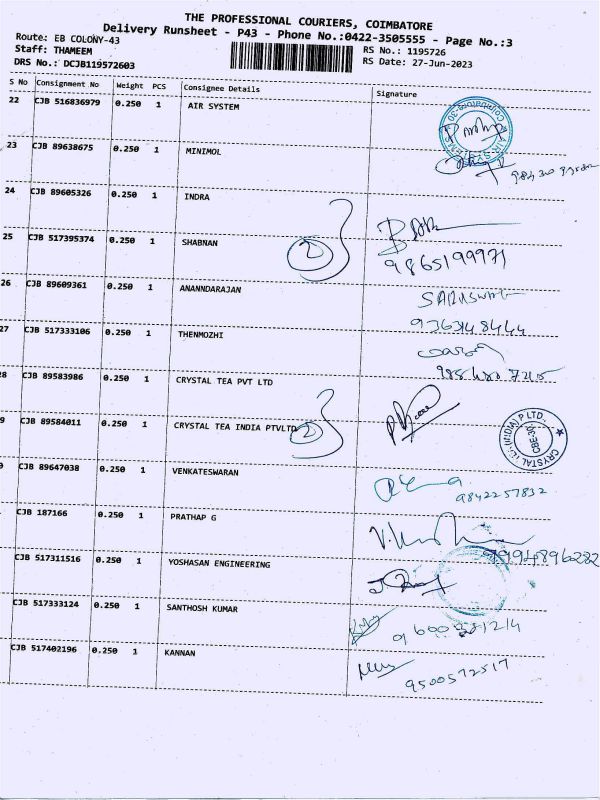 THE PROFESSIONAL COURIERS, COIMBATORE
Delivery Runsheet - P43 - Phone No.:0422-3505555 - Page No.:3
Route: EB COLONY-43
RS No.: 1195726
Staff: THAMEEM
RS Date: 27-Jun-2023
DRS No.: DCJB119572603
S No Consignment No Weight PCS Consignee Details Signature
22 CJB 516836979 0.250 1 AIR SYSTEM
23 CJB 89638675 0.250 1 MINIMOL
24 CJB 89605326 0.250 1 INDRA
25 CJB 517395374 0.250 1 SHABNAN 2
9865199971
26 CJB 89609361 0.250 1 ANANNDARAJAN
9363148444
27 CJB 517333106 0.250 1 THENMOZHI
28 CJB 89583986 0.250 1 CRYSTAL TEA PVT LTD
9 CJB 89584011 0.250 1 CRYSTAL TEA INDIA PTVLTD 2
CRYSTAL TEA (INDIA) P LTD. CBE-30
0 CJB 89647038 0.250 1 VENKATESWARAN
9842257832
CJB 187166 0.250 1 PRATHAP G
9994896282
CJB 517311516 0.250 1 YOSHASAN ENGINEERING
CJB 517333124 0.250 1 SANTHOSH KUMAR
CJB 517402196 0.250 1 KANNAN
9500572517